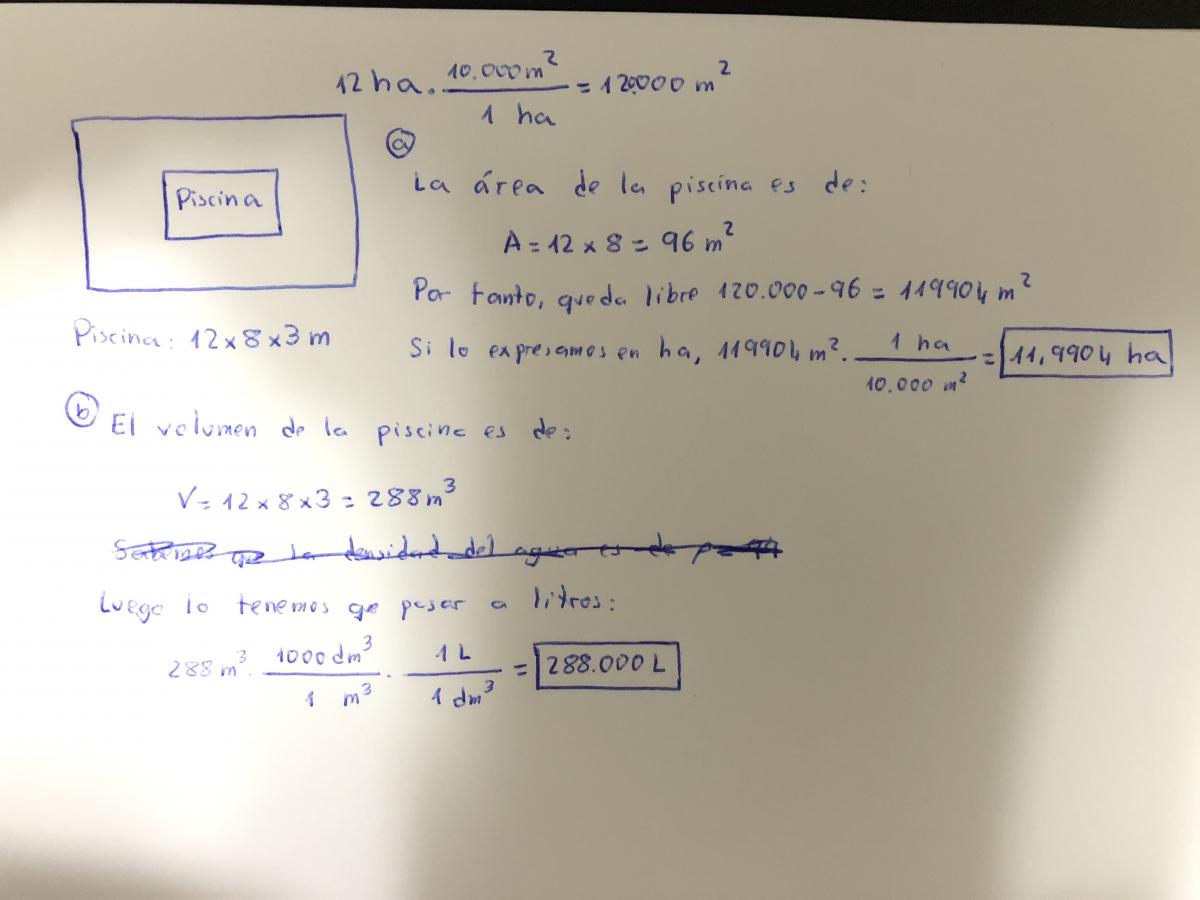 12 ha · 10.000 m² / 1 ha = 120.000 m²
Piscina
ⓐ
La área de la piscina es de:
A = 12 x 8 = 96 m²
Por tanto, queda libre 120.000 - 96 = 119904 m²
Piscina: 12 x 8 x 3 m
Si lo expresamos en ha, 119904 m² · 1 ha / 10.000 m² = 11,9904 ha
ⓑ El volumen de la piscina es de:
V = 12 x 8 x 3 = 288 m³
Sabemos qe la densidad del agua es de
Luego lo tenemos qe pasar a litros:
288 m³ · 1000 dm³ / 1 m³ · 1 L / 1 dm³ = 288.000 L